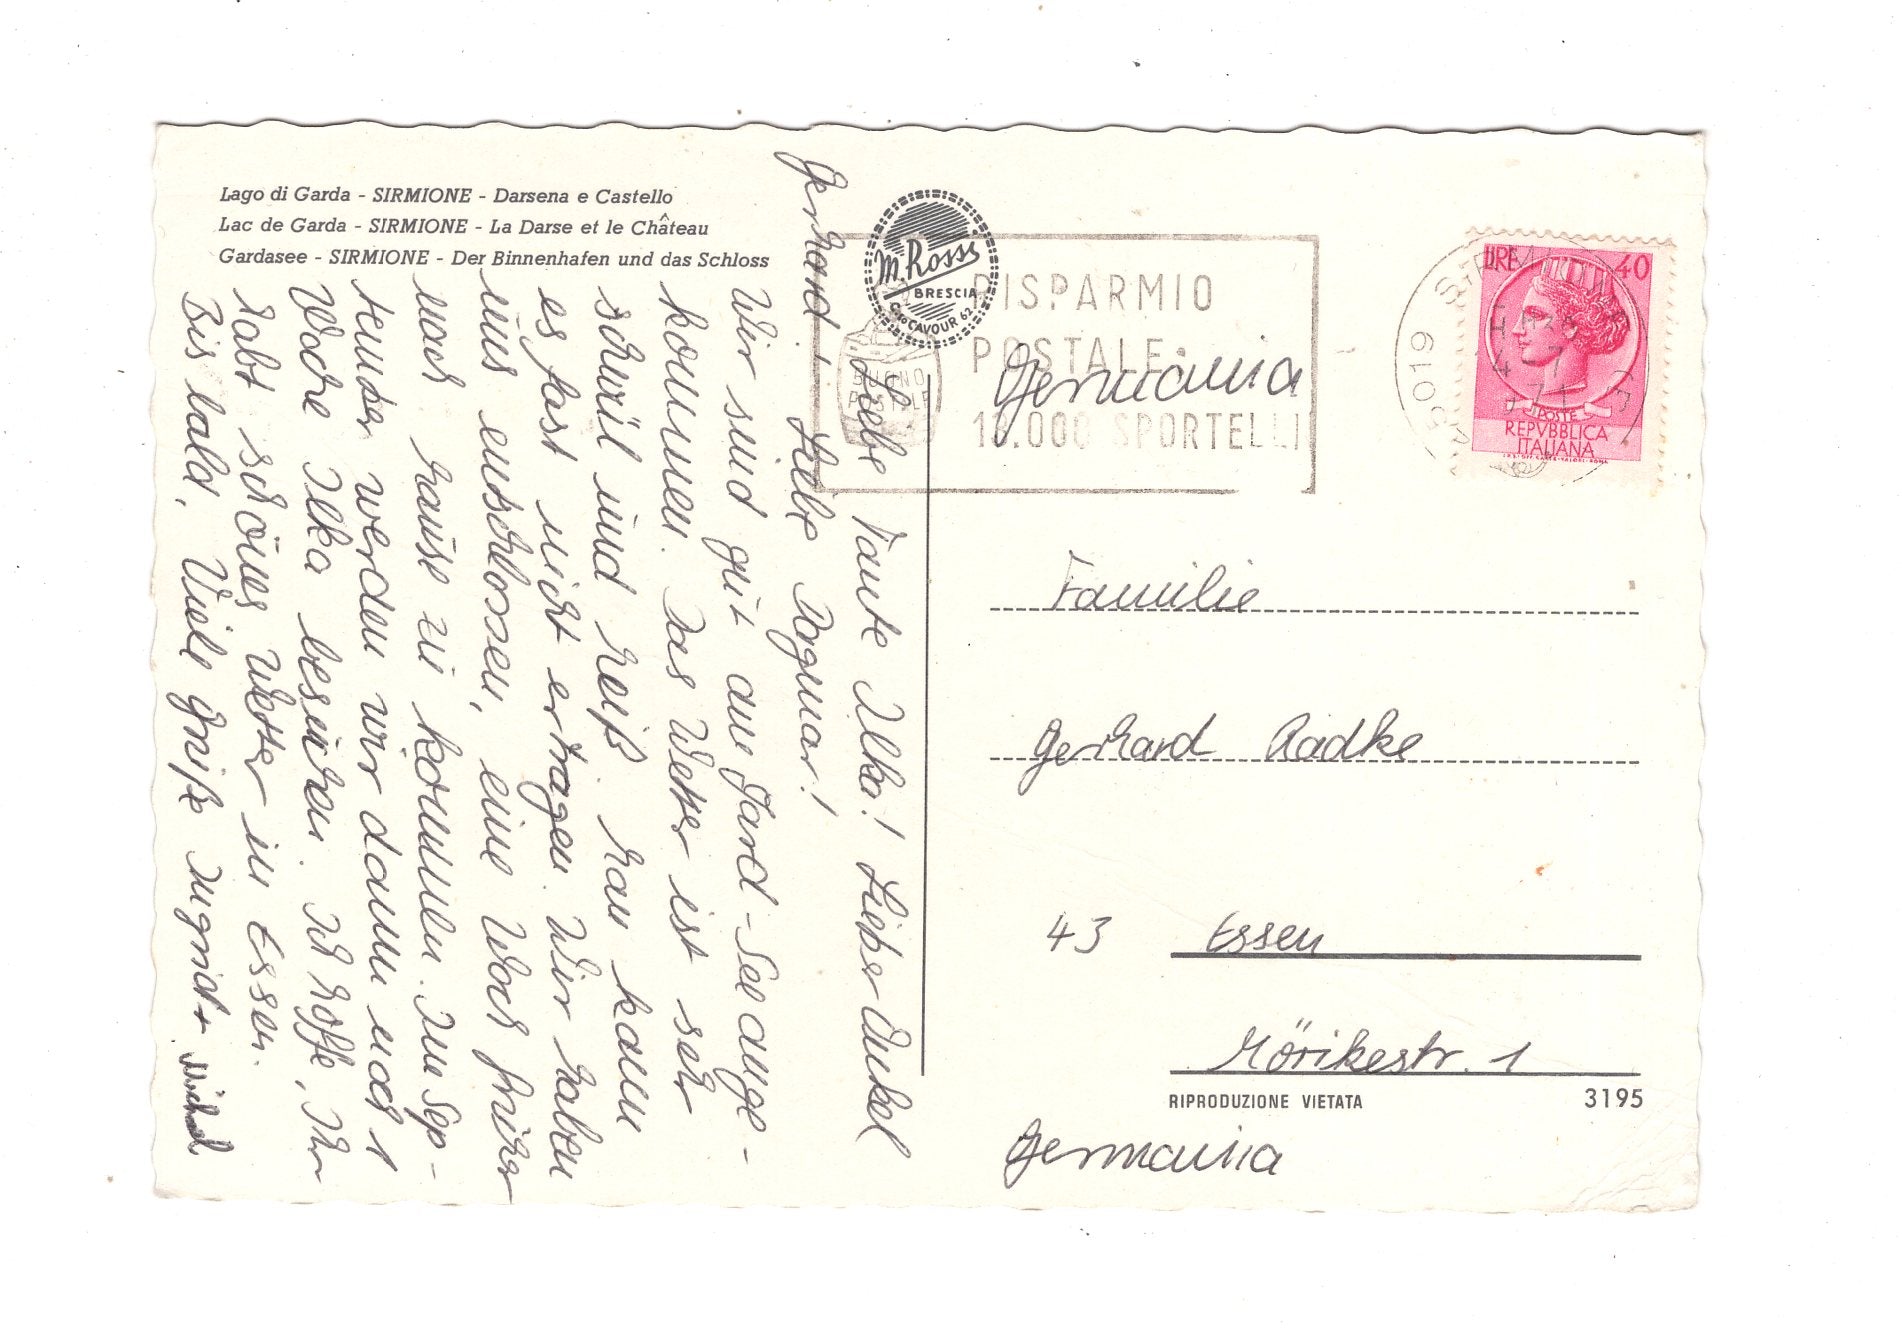 Lago di Garda - SIRMIONE - Darsena e Castello
Lac de Garda - SIRMIONE - La Darse et le Château
Gardasee - SIRMIONE - Der Binnenhafen und das Schloss
Liebe Tante Ilka! Lieber Onkel
Gerhard! Liebe Dagmar!
Wir sind gut am Gard-See ange-
kommen. Das Wetter ist sehr
schwül und heiß. Man kann
es fast nicht ertragen. Wir haben
uns entschlossen, eine Woch früher
nach Hause zu kommen. Im Sep-
tember werden wir dann noch 1
Woche Ilka besuchen. Ich hoffe, Ihr
habt schönes Wetter in Essen.
Bis bald, Viele Grüße Ingrid +
M. Rossi
BRESCIA
C.so CAVOUR 62
RISPARMIO
POSTALE
13.000 SPORTELLI
BUONO
POSTALE
Germania
25019
LIRE 40
POSTE
REPVBBLICA
ITALIANA
Familie
Gerhard Radke
43 Essen
Mörikestr. 1
RIPRODUZIONE VIETATA 3195
Germania